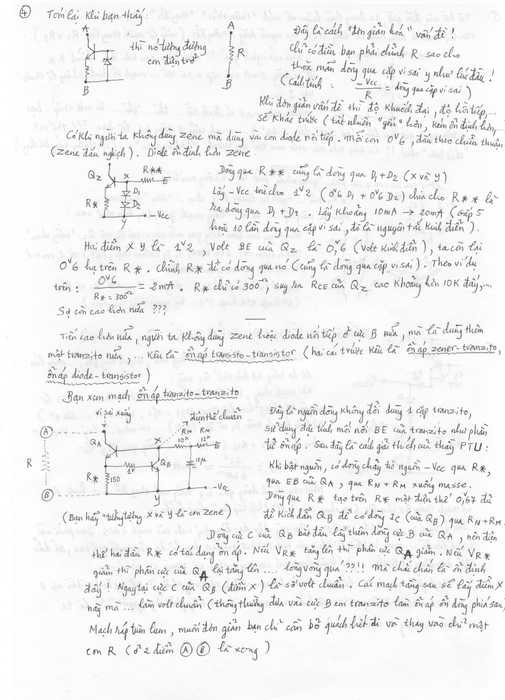 ④ Tóm lại khi bạn thấy:
A
B
thì nó tương đương
con điện trở
A
R
B
Đây là cách "đơn giản hoá" vấn đề !
Chỉ có điều bạn phải chỉnh R sao cho
thoả mãn dòng qua cặp vi sai y như lúc đầu !
(Cách tính : -Vcc / R = dòng qua cặp vi sai)
Khi đơn giản vấn đề thì độ khuếch đại, độ hồi tiếp,...
sẽ khác trước (tất nhiên "yếu" hơn, kém ổn định hơn,...
Có khi người ta không dùng zene mà dùng vài con diode nối tiếp. Mỗi con 0V6, đấu theo chiều thuận
(zene đấu nghịch). Diode ổn định hơn zene
QZ
R**
X
R*
D1
D2
Y
-Vcc
Dòng qua R** cũng là dòng qua D1+D2 (X và Y)
Lấy -Vcc trừ cho 1V2 (0V6 D1 + 0V6 D2) chia cho R** là
ra dòng qua D1+D2. Lấy khoảng 10mA → 20mA (gấp 5
hoặc 10 lần dòng qua cặp vi sai, đó là nguyên tắc kinh điển).
Hai điểm X Y là 1V2, Volt BE của QZ là 0V6 (Volt kinh điển), ta còn lại
0V6 hạ trên R*. Chỉnh R* để có dòng qua nó (cũng là dòng qua cặp vi sai). Theo ví dụ
trên : 0V6 / R*=300Ω = 2mA. R* chỉ có 300Ω, suy ra RCE của QZ cao khoảng hơn 10K đấy,...
Sợ còn cao hơn nữa ???
Tiến cao hơn nữa, người ta không dùng zene hoặc diode nối tiếp ở cực B nữa, mà là dùng thêm
một tranzito nữa,... Kêu là ổn áp transito-transistor (hai cái trước kêu là ổn áp zener-tranzito,
ổn áp diode-transistor)
Bạn xem mạch ổn áp tranzito-tranzito
vi sai xuống
điện thế chuẩn
A
R
B
QA
X
RM
RN
QB
R*
150
1K
10K
12K
Y
-Vcc
(Bạn hãy "tưởng tượng X và Y là con zene)
Đây là nguồn dòng không đổi dùng 1 cặp tranzito,
sử dụng đặc tính mối nối BE của tranzito như phần
tử ổn áp. Sau đây là cách giải thích của thầy PTU:
Khi bật nguồn, có dòng chảy từ nguồn -Vcc qua R*,
qua EB của QA, qua RN+RM xuống masse.
Dòng qua R* tạo trên R* một điện thế 0,67 đủ
để kích dẫn QB để có dòng IC (của QB) qua RN+RM.
Dòng cực C của QB bắt đầu lấy thêm dòng cực B của QA, nên điện
thế hai đầu R* có tác dụng ổn áp. Nếu VR* tăng lên thì phân cực QA giảm. Nếu VR*
giảm thì phân cực của QA lại tăng lên .... lòng vòng quá ??!! mà chắc chắn là ổn định
đấy ! Ngay tại cực C của QB (điểm X) là số volt chuẩn. Các mạch tầng sau sẽ lấy điểm X
này mà ... làm volt chuẩn (thông thường đưa vào cực B em tranzito làm ổn áp ổn dòng phía sau)
Mạch ráp tùm lum, muốn đơn giản bạn chỉ cần bỏ quách hết đi và thay vào chỉ một
con R (ở 2 điểm Ⓐ Ⓑ là xong)